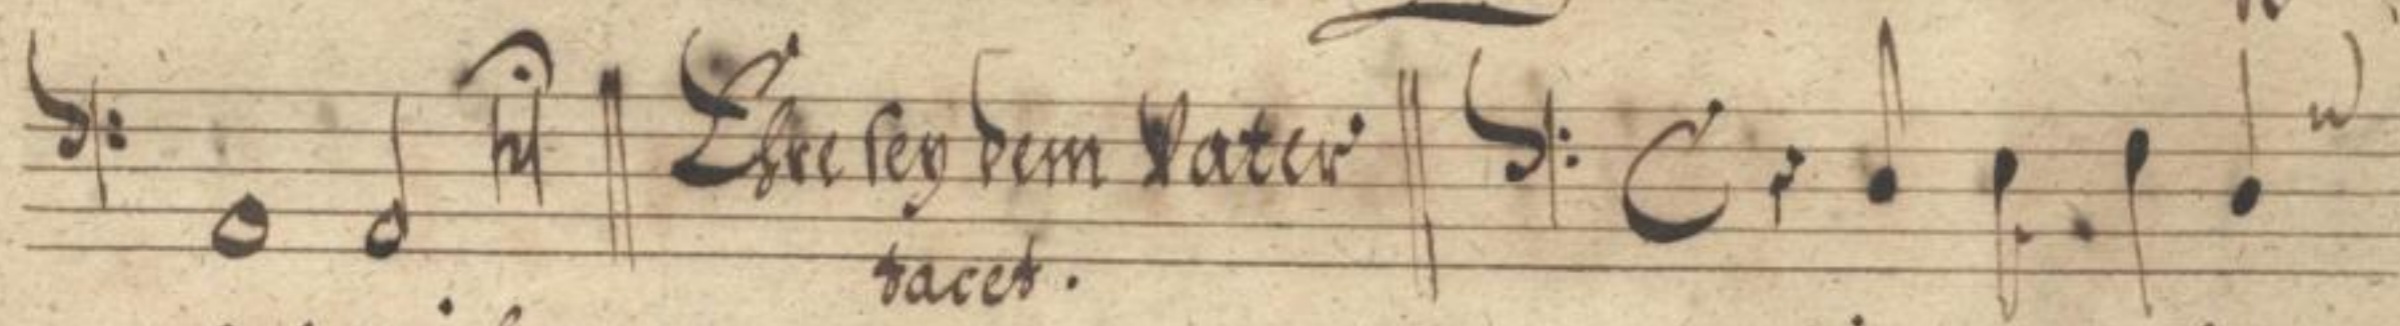 Ehre sey dem Vater
tacet.